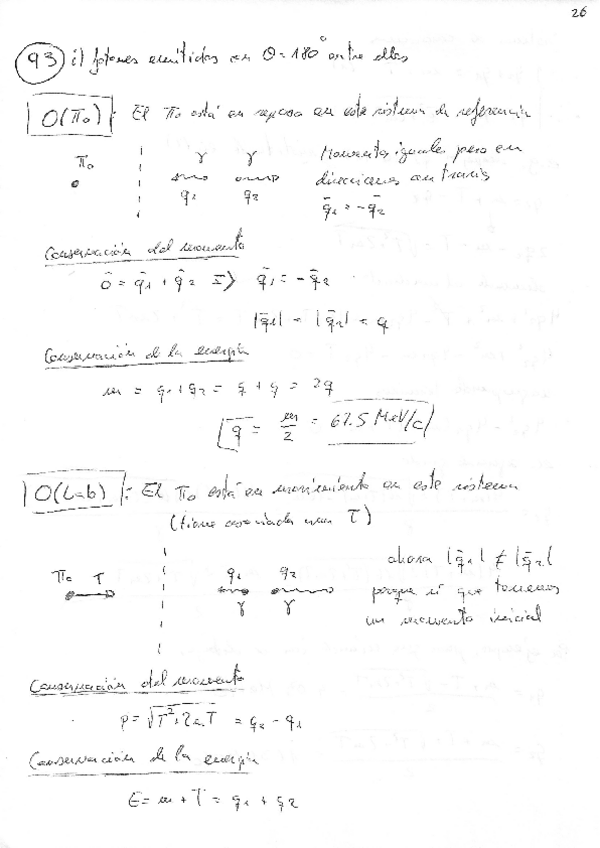 26
93 i) fotones emitidos con θ=180° entre ellos
O(π₀): El π₀ está en reposo en este sistema de referencia
π₀ γ γ Momentos iguales pero en
q₁ q₂ direcciones contrarias
q̄₁ = -q̄₂
Conservación del momento
ō = q̄₁ + q̄₂ => q̄₁ = -q̄₂
|q̄₁| = |q̄₂| = q
Conservación de la energía
m = q₁+q₂ = q + q = 2q
q = m/2 = 67.5 MeV/c
O(Lab): El π₀ está en movimiento en este sistema
(tiene asociada una T)
π₀ T q₁ q₂ ahora |q̄₁| ≠ |q̄₂|
γ γ porque sí que tenemos
un momento inicial
Conservación del momento
p = √T²+2mT = q₂ - q₁
Conservación de la energía
E = m + T = q₁ + q₂